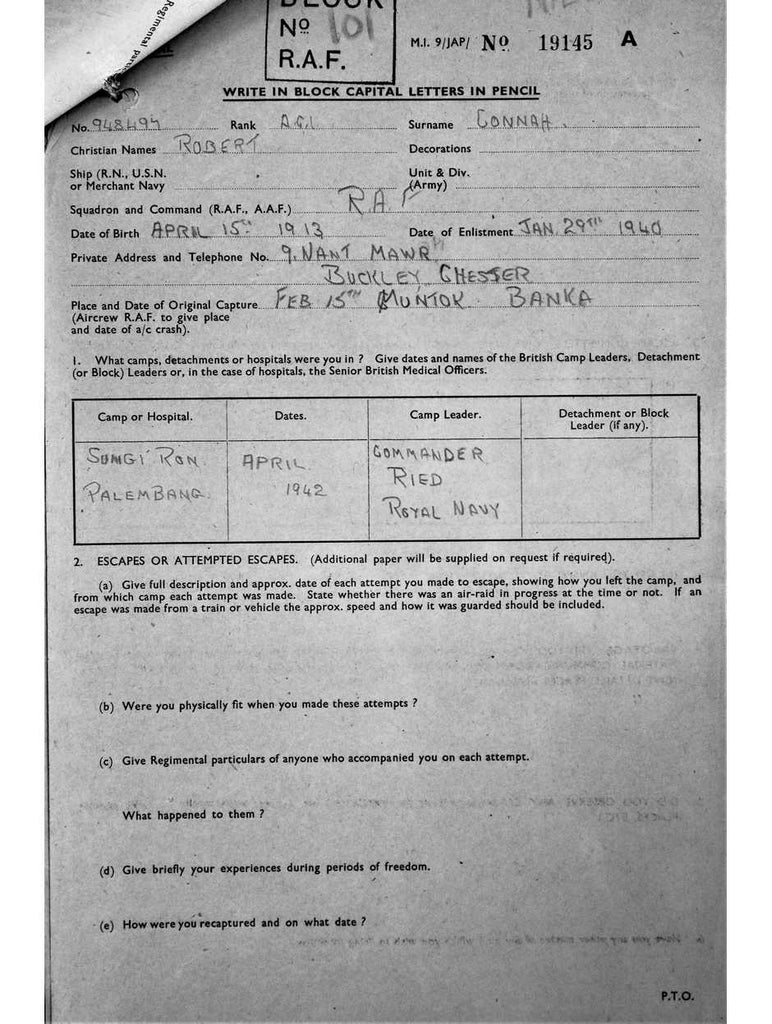 Regimental parti
BLOCK
Nº 101
R.A.F.
M.I. 9/JAP/ Nº 19145 A
WRITE IN BLOCK CAPITAL LETTERS IN PENCIL
No. 948494 Rank A.C.1. Surname CONNAH.
Christian Names ROBERT Decorations
Ship (R.N., U.S.N. Unit & Div.
or Merchant Navy (Army)
Squadron and Command (R.A.F., A.A.F.) RAF
Date of Birth APRIL 15TH 1913 Date of Enlistment JAN. 29TH 1940
Private Address and Telephone No. 9. NANT MAWR
BUCKLEY CHESSER
Place and Date of Original Capture FEB 15TH MUNTOK BANKA
(Aircrew R.A.F. to give place
and date of a/c crash).
1. What camps, detachments or hospitals were you in ? Give dates and names of the British Camp Leaders, Detachment
(or Block) Leaders or, in the case of hospitals, the Senior British Medical Officers.
Camp or Hospital. Dates. Camp Leader. Detachment or Block
Leader (if any).
SUNGI RON. APRIL COMMANDER
PALEMBANG. 1942 RIED
ROYAL NAVY
2. ESCAPES OR ATTEMPTED ESCAPES. (Additional paper will be supplied on request if required).
(a) Give full description and approx. date of each attempt you made to escape, showing how you left the camp, and
from which camp each attempt was made. State whether there was an air-raid in progress at the time or not. If an
escape was made from a train or vehicle the approx. speed and how it was guarded should be included.
(b) Were you physically fit when you made these attempts ?
(c) Give Regimental particulars of anyone who accompanied you on each attempt.
What happened to them ?
(d) Give briefly your experiences during periods of freedom.
(e) How were you recaptured and on what date ?
P.T.O.